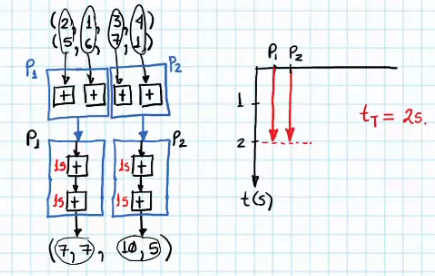 (2, 1, 3, 4)
(5, 6, 7, 1)
P1 P2
+ + + +
P1 P2
1s + 1s +
1s + 1s +
(7, 7, 10, 5)
P1 P2
1
2
t(s)
tT = 2s.